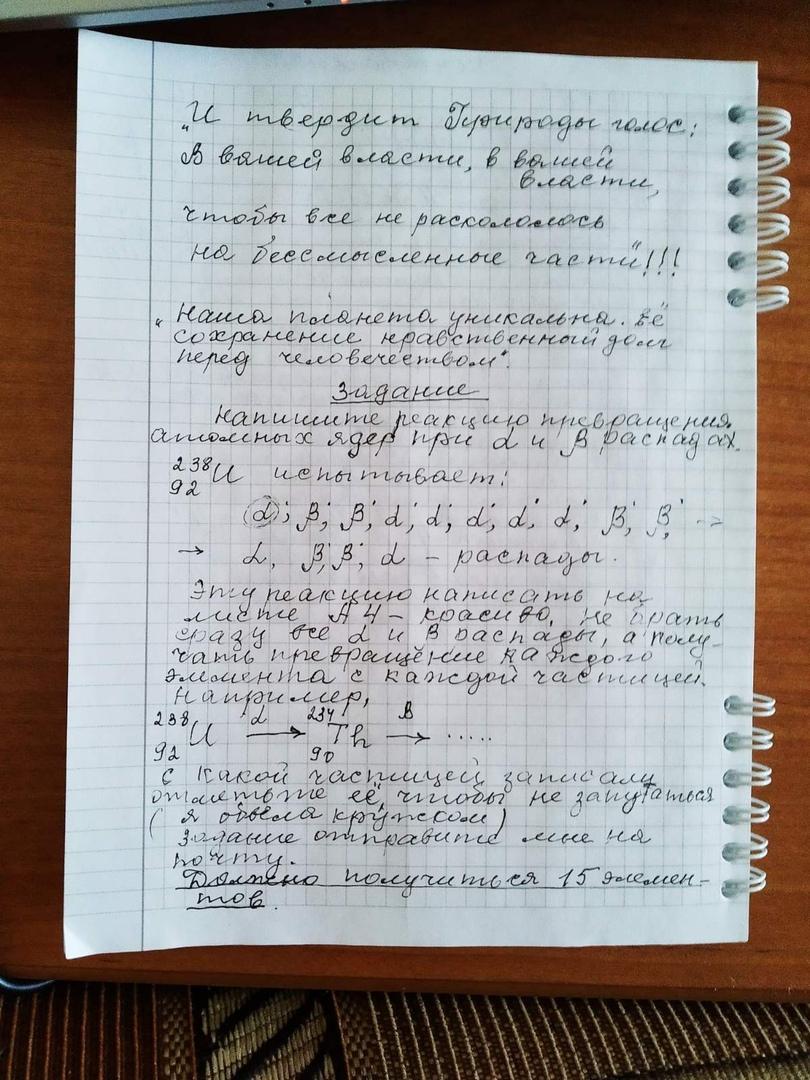 „И твердит Природы голос:
В вашей власти, в вашей
власти,
чтобы все не раскололось
на бессмысленные части"!!!
„Наша планета уникальна. Её
сохранение нравственный долг
перед человечеством".
Задание
Напишите реакцию превращения
атомных ядер при α и β распадах.
²³⁸₉₂U испытывает:
α; β; β; α; α; α; α; α; β; β; →
→ α, β; β; α - распады.
Эту реакцию написать на
листе А4 - красиво. Не брать
сразу все α и β распады, а полу-
чать превращение каждого
элемента с каждой частицей.
Например,
²³⁸₉₂U α→ ²³⁴₉₀Th β→ .....
С какой частицей записали
отметьте её, чтобы не запутаться
(я обвела кружком)
Задание отправите мне на
почту.
Должно получиться 15 элемен-
тов.